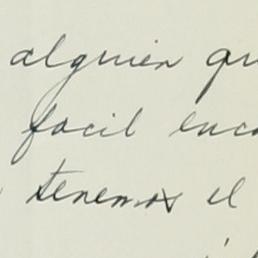 alguien qu
facil enco
tenemos el